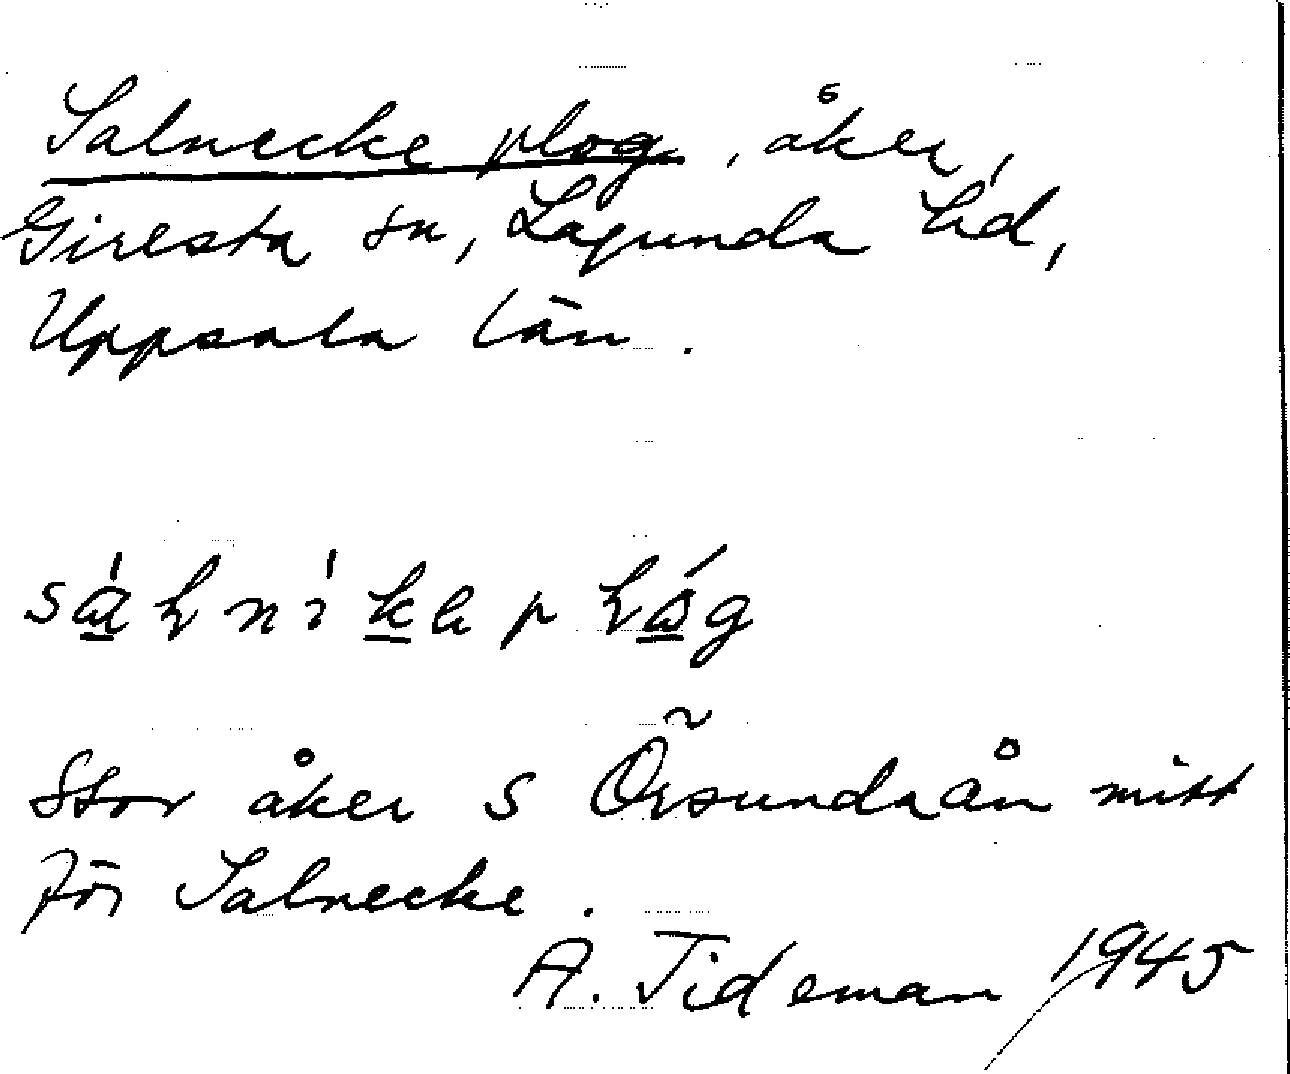 Salnecke plog, åker,
Giresta sn, Lagunda hd,
Uppsala län.
Stor åker S Örsundaån mitt
för Salnecke.
A. Tideman 1945